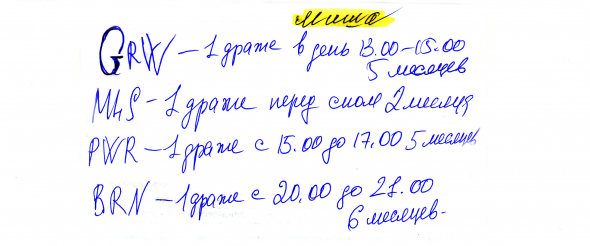 Миша
GRW – 1 драже в день 13.00–15.00
5 месяцев
MLS – 1 драже перед сном 2 месяца
PWR – 1 драже с 15.00 до 17.00 5 месяцев
BRN – 1 драже с 20.00 до 21.00
6 месяцев.